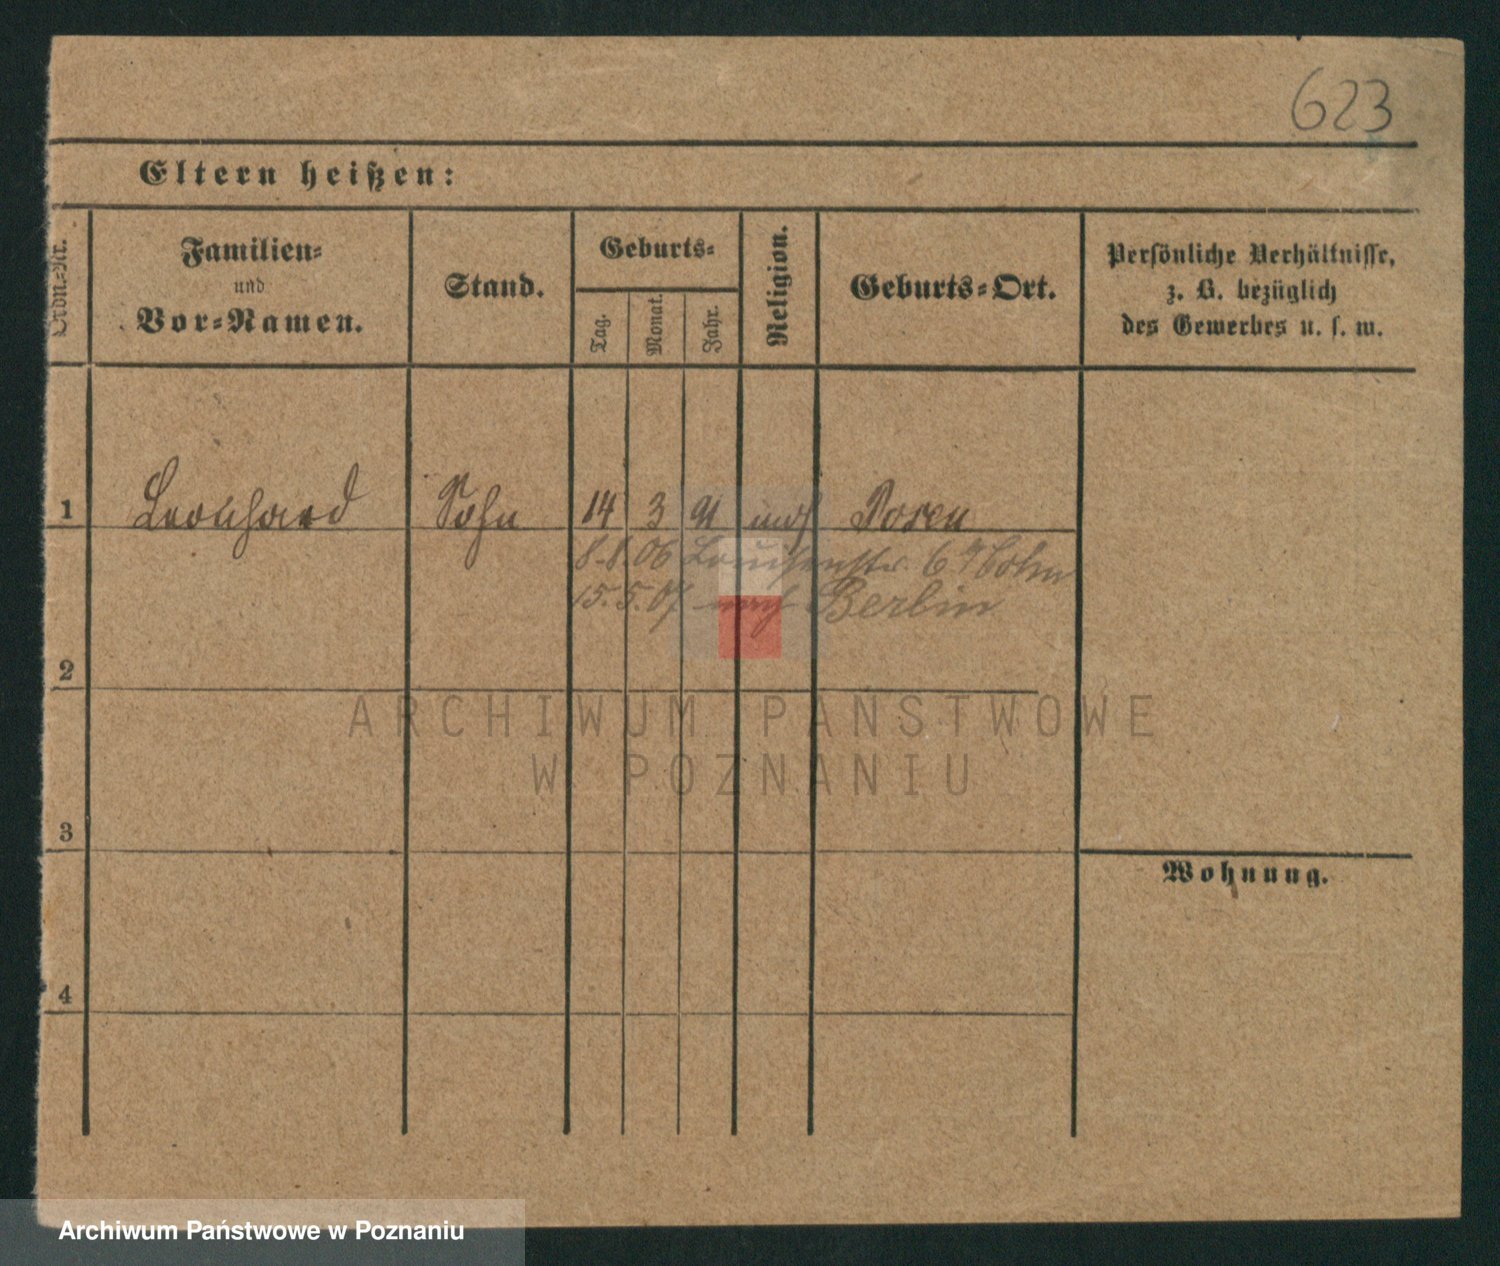 623
Eltern heißen:
Ordn.-Nr.
Familien-
und
Vor-Namen.
Stand.
Geburts-
Tag.
Monat.
Jahr.
Religion.
Geburts-Ort.
Persönliche Verhältnisse,
z. B. bezüglich
des Gewerbes u. s. w.
1 Leonhard Sohn 14 3 91 Posen
8.8.06 Louisenstr. 6
15.5.07 nach Berlin
2
ARCHIWUM PAŃSTWOWE
W POZNANIU
3
Wohnung.
4
Archiwum Państwowe w Poznaniu